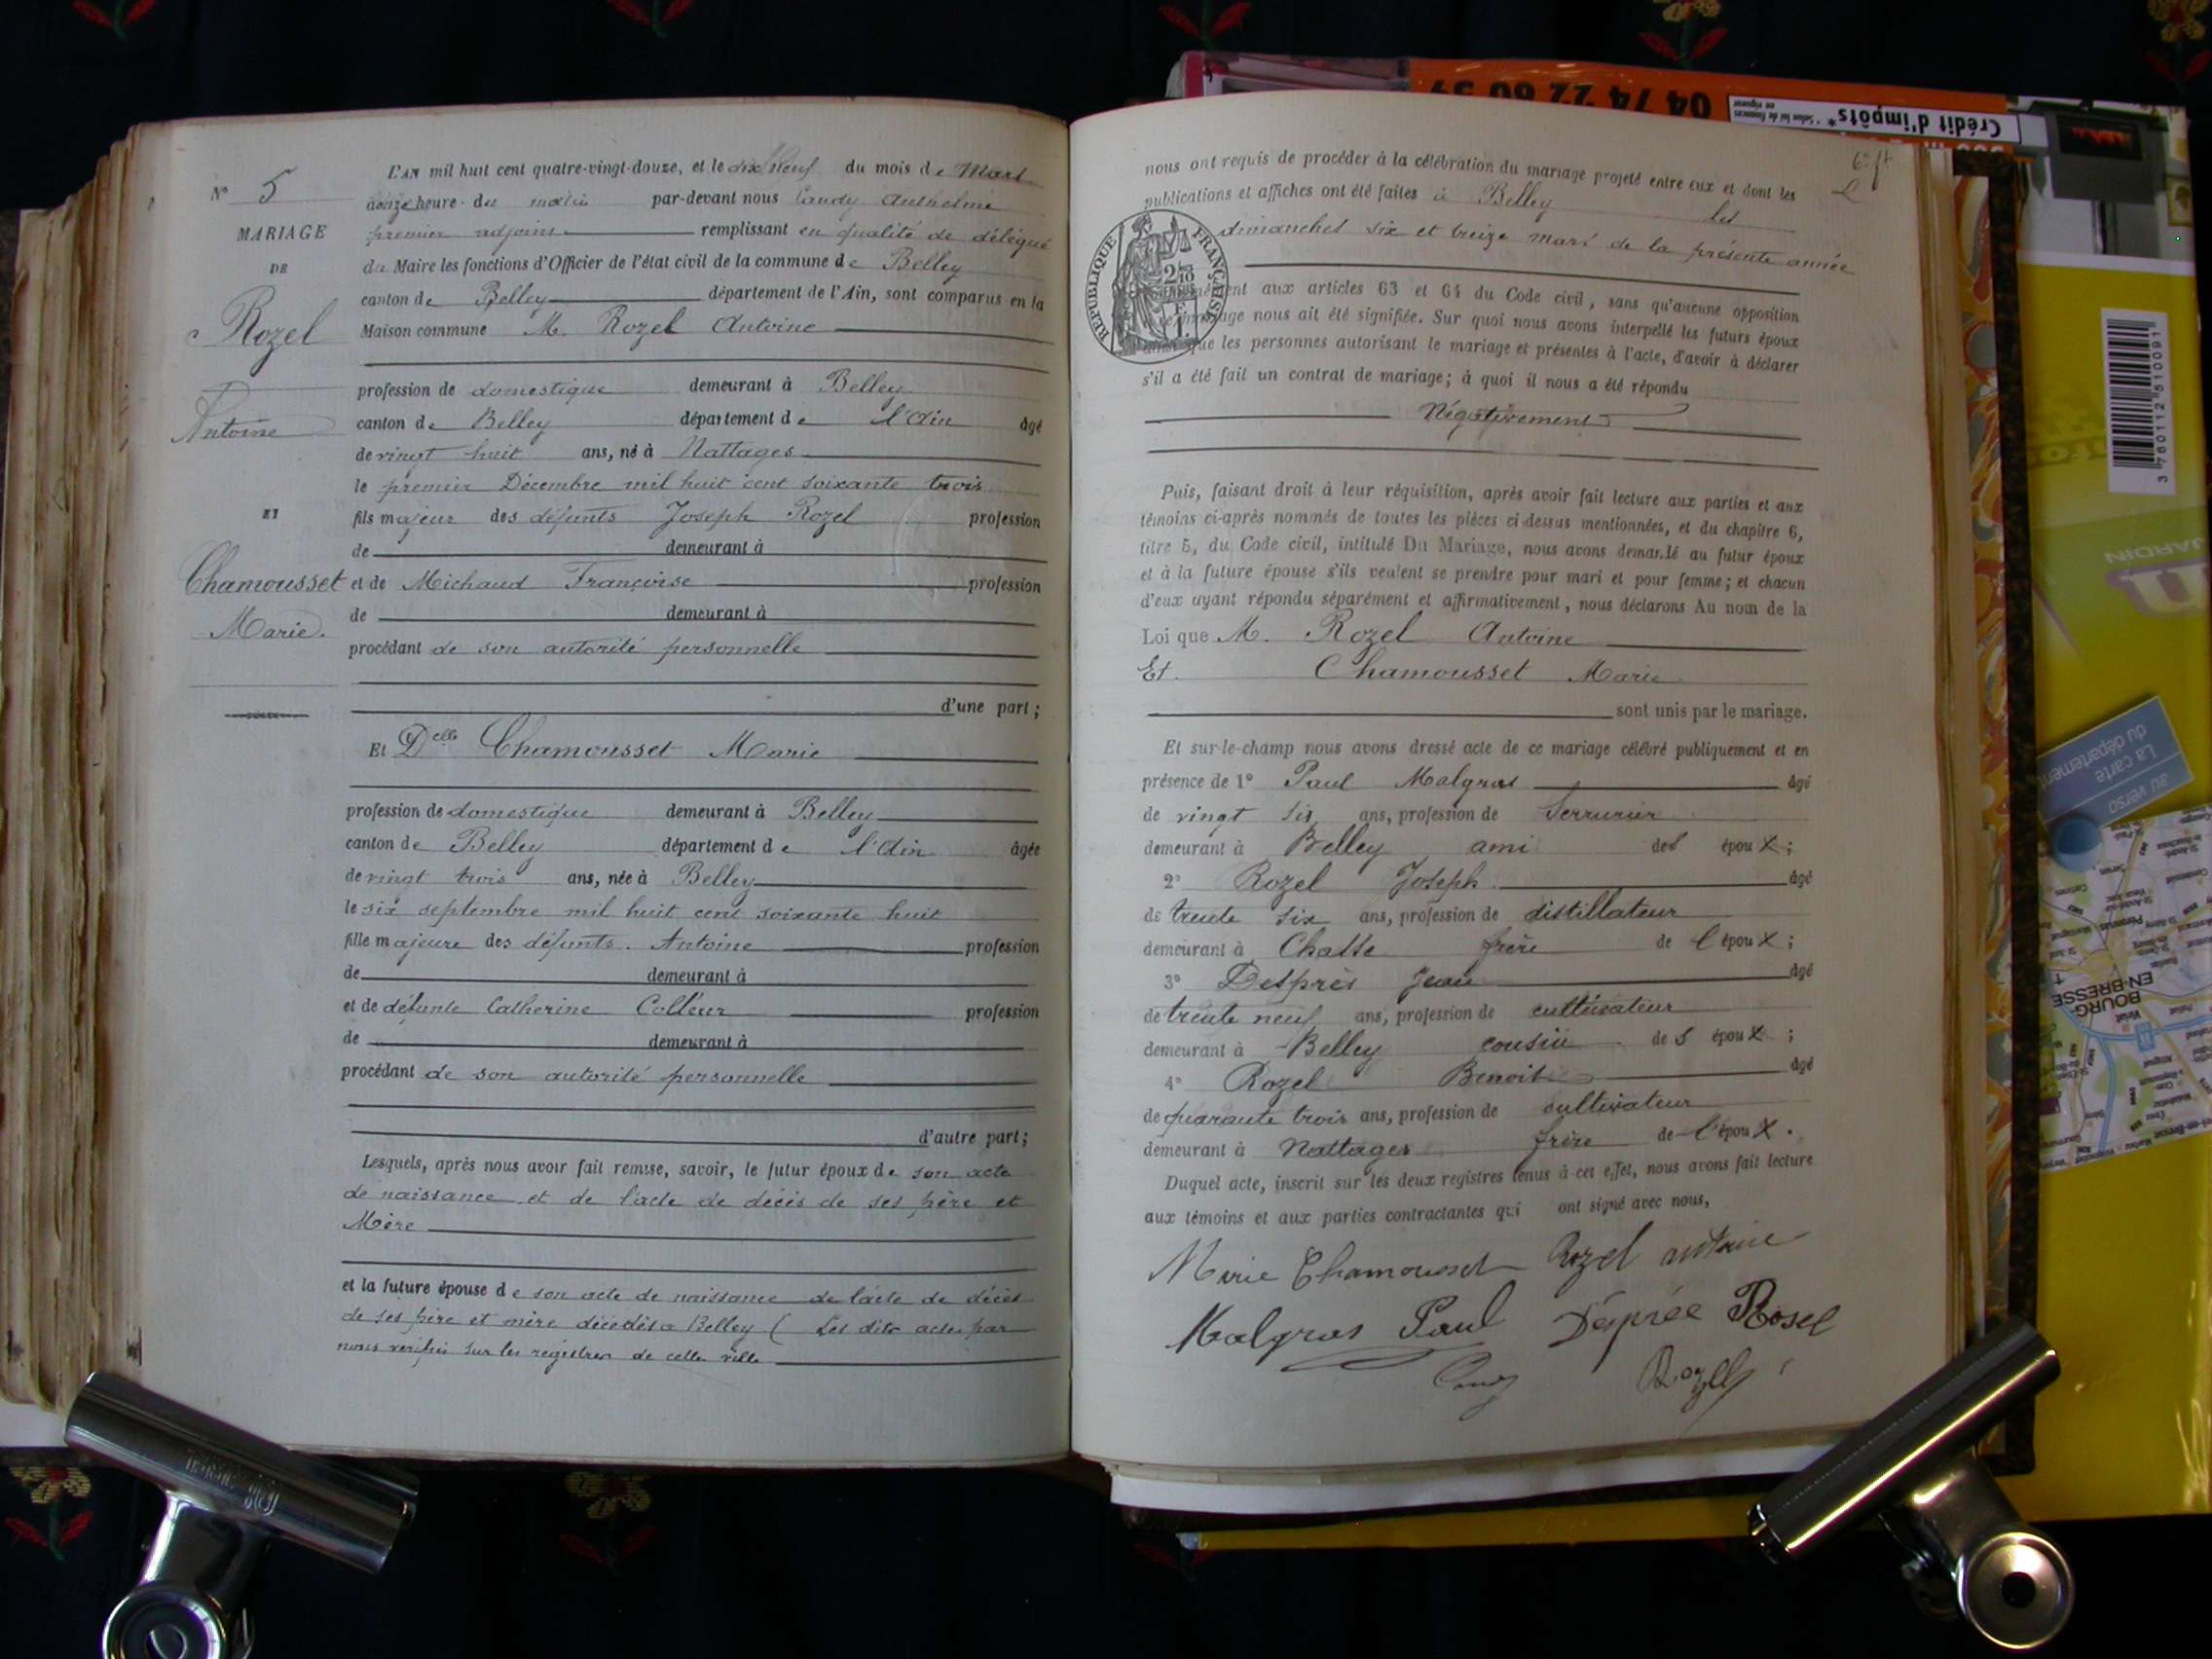 N° 5
MARIAGE
DE
Rozel
Antoine
ET
Chamousset
Marie.
L'AN mil huit cent quatre-vingt-douze, et le dix neuf du mois de Mars
heure du matin par-devant nous Caudy Anthelme
premier adjoint remplissant en qualité de délégué
du Maire les fonctions d'Officier de l'état civil de la commune de Belley
canton de Belley département de l'Ain, sont comparus en la
Maison commune M. Rozel Antoine
profession de domestique demeurant à Belley
canton de Belley département de l'Ain âgé
de vingt huit ans, né à Nattages
le premier Décembre mil huit cent soixante trois
fils majeur des défunts Joseph Rozel profession
de demeurant à
et de Michaud Françoise profession
de demeurant à
procédant de son autorité personnelle
d'une part;
Et Delle Chamousset Marie
profession de domestique demeurant à Belley
canton de Belley département de l'Ain âgée
de vingt trois ans, née à Belley
le six septembre mil huit cent soixante huit
fille majeure des défunts. Antoine profession
de demeurant à
et de défunte Catherine Colleur profession
de demeurant à
procédant de son autorité personnelle
d'autre part;
Lesquels, après nous avoir fait remise, savoir, le futur époux de son acte
de naissance et de l'acte de décès de ses père et
Mère
et la future épouse de son acte de naissance de l'acte de décès
de ses père et mère décédés à Belley ( Les dits actes par
nous vérifiés sur les registres de cette ville
nous ont requis de procéder à la célébration du mariage projeté entre eux et dont les
publications et affiches ont été faites à Belley les
dimanches six et treize mars de la présente année
RÉPUBLIQUE FRANÇAISE
aux articles 63 et 64 du Code civil, sans qu'aucune opposition
mariage nous ait été signifiée. Sur quoi nous avons interpellé les futurs époux
que les personnes autorisant le mariage et présentes à l'acte, d'avoir à déclarer
s'il a été fait un contrat de mariage; à quoi il nous a été répondu
Négativement
Puis, faisant droit à leur réquisition, après avoir fait lecture aux parties et aux
témoins ci-après nommés de toutes les pièces ci dessus mentionnées, et du chapitre 6,
titre 5, du Code civil, intitulé Du Mariage, nous avons demandé au futur époux
et à la future épouse s'ils veulent se prendre pour mari et pour femme; et chacun
d'eux ayant répondu séparément et affirmativement, nous déclarons Au nom de la
Loi que M. Rozel Antoine
Et Chamousset Marie
sont unis par le mariage.
Et sur-le-champ nous avons dressé acte de ce mariage célébré publiquement et en
présence de 1° Paul Malgras âgé
de vingt six ans, profession de Serrurier
demeurant à Belley ami des époux;
2° Rozel Joseph âgé
de trente six ans, profession de distillateur
demeurant à Chatte frère de l'époux;
3° Desprès Jean âgé
de trente neuf ans, profession de cultivateur
demeurant à Belley cousin des époux;
4° Rozel Benoit âgé
de quarante trois ans, profession de cultivateur
demeurant à Nattages frère de l'époux.
Duquel acte, inscrit sur les deux registres tenus à cet effet, nous avons fait lecture
aux témoins et aux parties contractantes qui ont signé avec nous,
Marie Chamousset Rozel antoine
Malgras Paul Désprée Rosel
04 74 22 60 59
Crédit d'impôts*
3 760112 510091
JARDIN
La carte
du département
au verso
BOURG-
EN-BRESSE